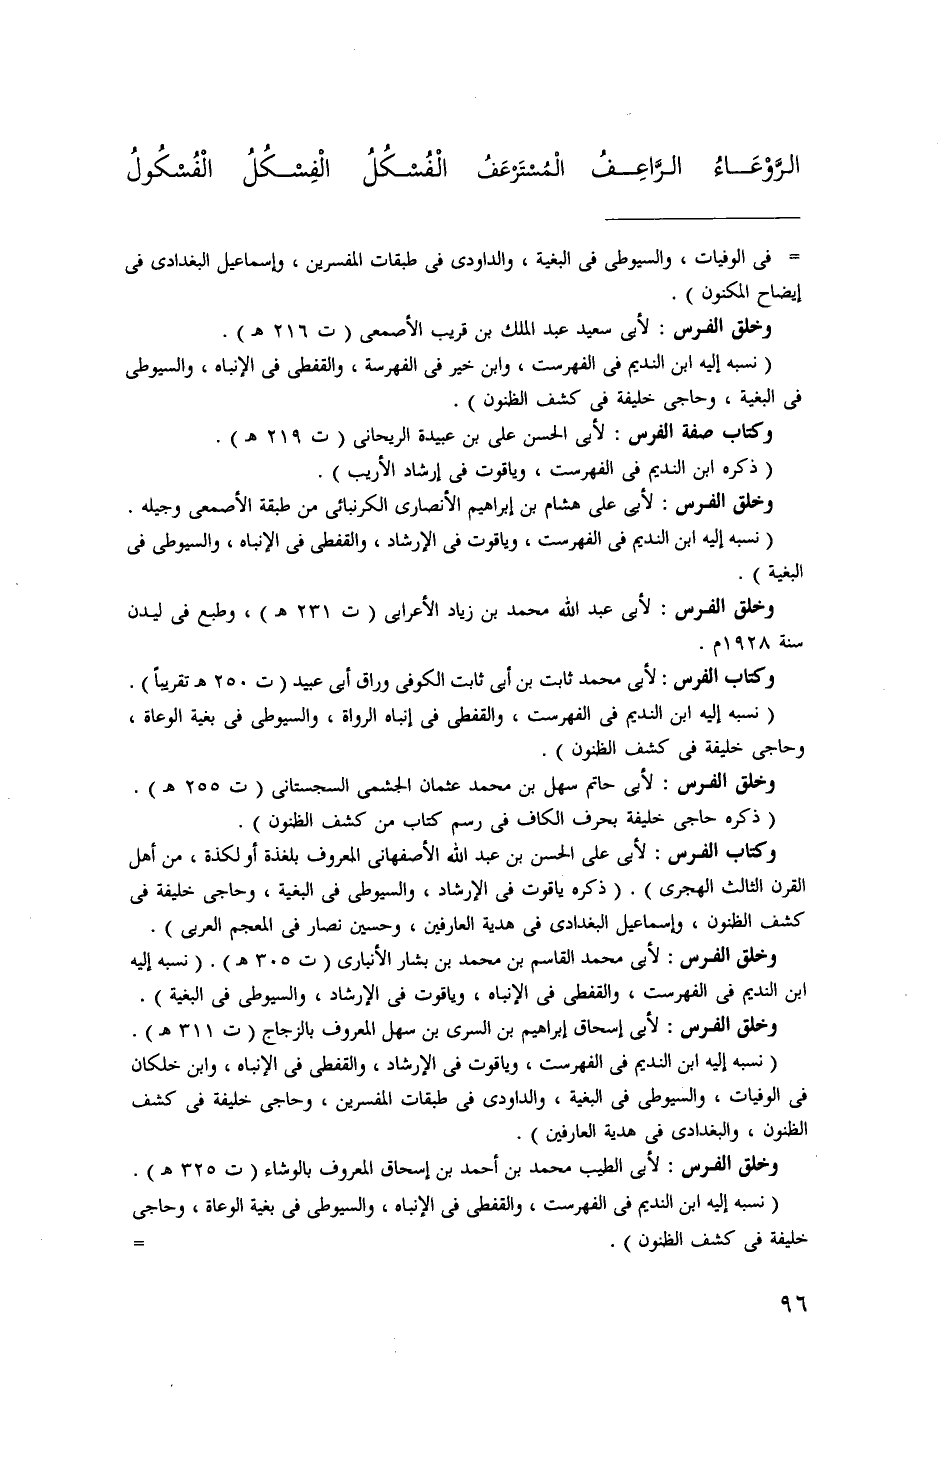 الرَّوْعَاءُ الرَّاعِفُ الْمُسْتَرْعَفُ الْفُسْكُلُ الْفِسْكُلُ الْفُسْكُولُ
= فى الوفيات ، والسيوطى فى البغية ، والداودى فى طبقات المفسرين ، وإسماعيل البغدادى فى
إيضاح المكنون ) .
وخلق الفرس : لأبى سعيد عبد الملك بن قريب الأصمعى ( ت ٢١٦ هـ ) .
( نسبه إليه ابن النديم فى الفهرست ، وابن خير فى الفهرسة ، والقفطى فى الإنباه ، والسيوطى
فى البغية ، وحاجى خليفة فى كشف الظنون ) .
وكتاب صفة الفرس : لأبى الحسن على بن عبيدة الريحانى ( ت ٢١٩ هـ ) .
( ذكره ابن النديم فى الفهرست ، وياقوت فى إرشاد الأريب ) .
وخلق الفرس : لأبى على هشام بن إبراهيم الأنصارى الكرنبائى من طبقة الأصمعى وجيله .
( نسبه إليه ابن النديم فى الفهرست ، وياقوت فى الإرشاد ، والقفطى فى الإنباه ، والسيوطى فى
البغية ) .
وخلق الفرس : لأبى عبد الله محمد بن زياد الأعرابى ( ت ٢٣١ هـ ) ، وطبع فى ليدن
سنة ١٩٢٨م .
وكتاب الفرس : لأبى محمد ثابت بن أبى ثابت الكوفى وراق أبى عبيد ( ت ٢٥٠ هـ تقريباً ) .
( نسبه إليه ابن النديم فى الفهرست ، والقفطى فى إنباه الرواة ، والسيوطى فى بغية الوعاة ،
وحاجى خليفة فى كشف الظنون ) .
وخلق الفرس : لأبى حاتم سهل بن محمد عثمان الجشمى السجستانى ( ت ٢٥٥ هـ ) .
( ذكره حاجى خليفة بحرف الكاف فى رسم كتاب من كشف الظنون ) .
وكتاب الفرس : لأبى على الحسن بن عبد الله الأصفهانى المعروف بلغذة أو لكذة ، من أهل
القرن الثالث الهجرى ) . ( ذكره ياقوت فى الإرشاد ، والسيوطى فى البغية ، وحاجى خليفة فى
كشف الظنون ، وإسماعيل البغدادى فى هدية العارفين ، وحسين نصار فى المعجم العربى ) .
وخلق الفرس : لأبى محمد القاسم بن محمد بن بشار الأنبارى ( ت ٣٠٥ هـ ) . ( نسبه إليه
ابن النديم فى الفهرست ، والقفطى فى الإنباه ، وياقوت فى الإرشاد ، والسيوطى فى البغية ) .
وخلق الفرس : لأبى إسحاق إبراهيم بن السرى بن سهل المعروف بالزجاج ( ت ٣١١ هـ ) .
( نسبه إليه ابن النديم فى الفهرست ، وياقوت فى الإرشاد ، والقفطى فى الإنباه ، وابن خلكان
فى الوفيات ، والسيوطى فى البغية ، والداودى فى طبقات المفسرين ، وحاجى خليفة فى كشف
الظنون ، والبغدادى فى هدية العارفين ) .
وخلق الفرس : لأبى الطيب محمد بن أحمد بن إسحاق المعروف بالوشاء ( ت ٣٢٥ هـ ) .
( نسبه إليه ابن النديم فى الفهرست ، والقفطى فى الإنباه ، والسيوطى فى بغية الوعاة ، وحاجى
خليفة فى كشف الظنون ) . =
٩٦